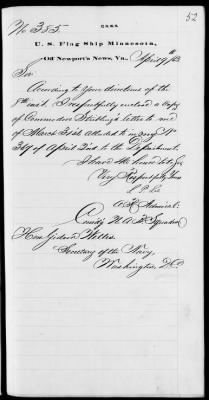 52
No 355.
U. S. Flag Ship Minnesota,
Off Newport's News, Va., April 9th /63
Sir
According to your directions of the
8th inst. I respectfully enclose a copy
of Commodore letter to me
of March 31st alluded to in my No
of April 2nd to the Department.
I have the honor to be, Sir
Very Respectfully Yours
S. P. Lee
A. R. Admiral.
Comdg N. A. B. Squadron
Hon. Gideon Welles.
Secretary of the Navy,
Washington, D.C.